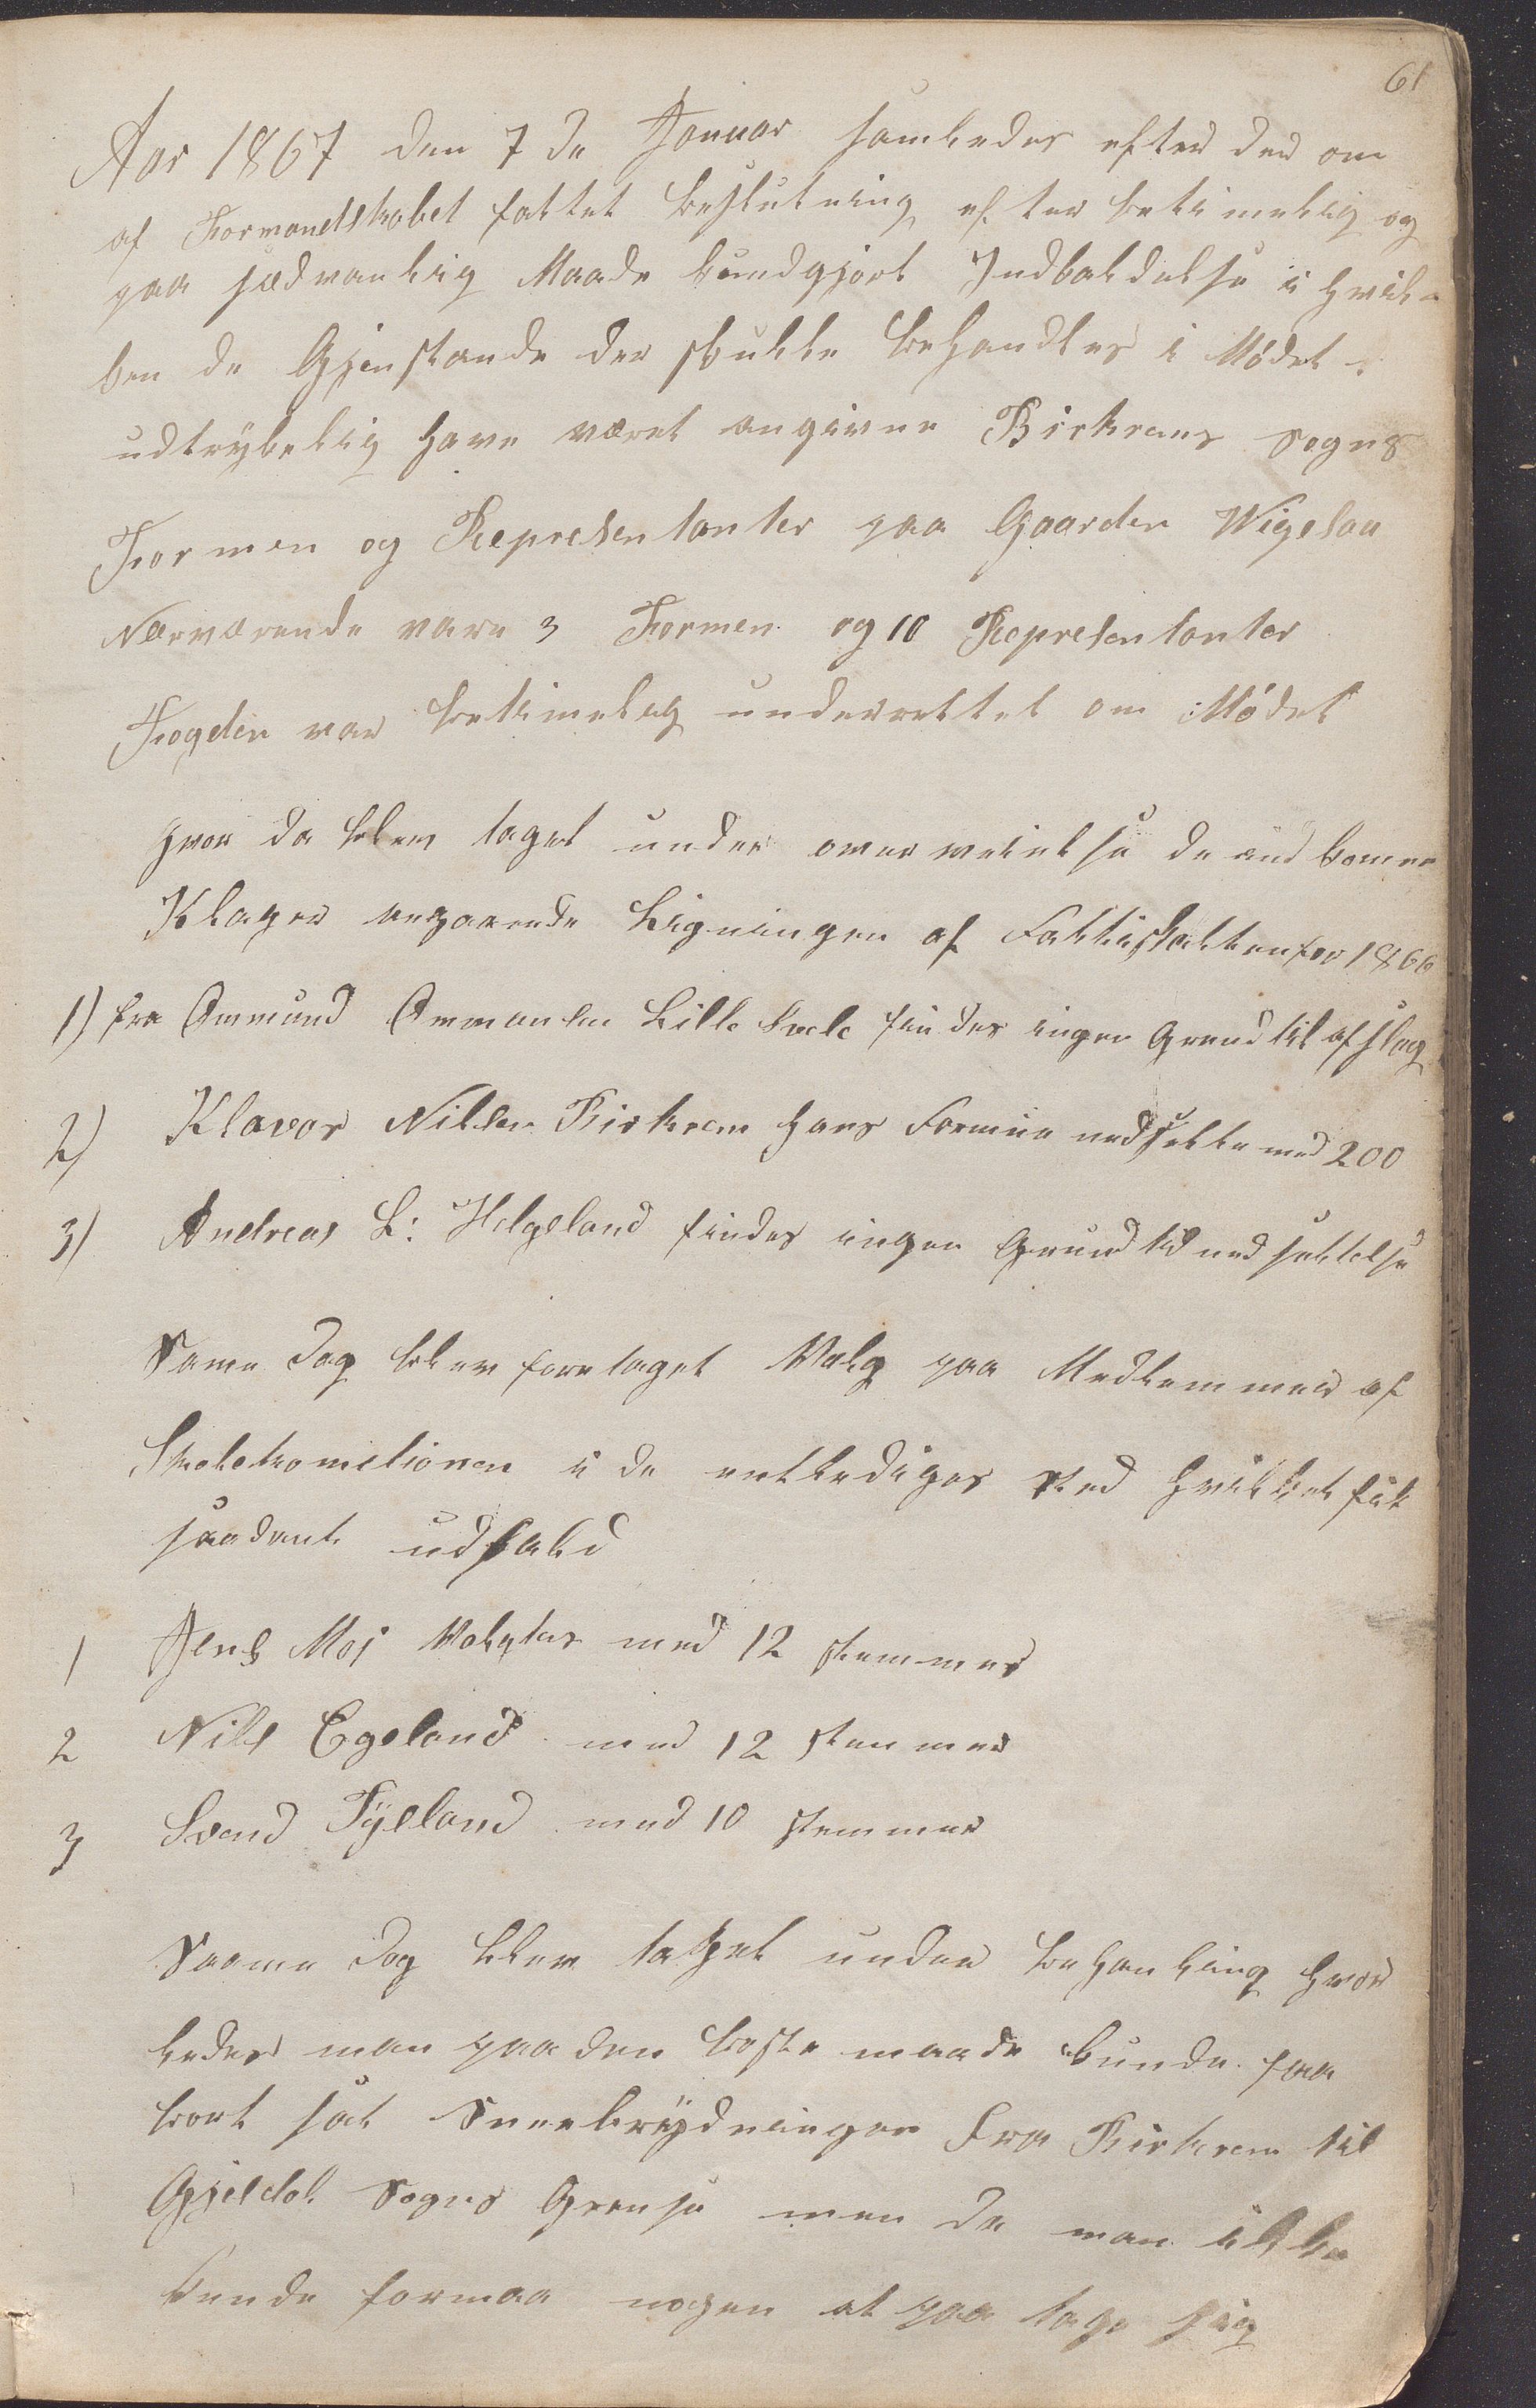 61
Aar 1867 den 7de Januar samledes efter der om
af Formandskabet fattet beslutning efter betimelig og
paa sædvanlig Maade kundgjort Indkaldelse i hvil-
ken de Gjenstande der skulle behandles i Mødet
udtrykelig have været angivne Birkrems Sogns
Formen og Representanter paa Gaarden Wigesaa
Nærværende vare 3 Formen og 10 Representanter
Fogden var betimelig underrettet om Mødet
hvor da blev taget under overveielse de indkomne
Klager angaaende Ligningen af Fattiskatten for 1866
1) fra Ommund Ommunsen Lille Svele findes ingen Grund til afslag
2) Klavor Nilsen Birkrem hans Formue nedsette med 200
3) Andreas L: Helgeland findes ingen Grund til nedsettelse
Same Dag blev foretaget Valg paa Medlemmer af
Skolekomisionen i de entlediges sted hvilket fik
saadant udfald
1 Jens Moj Valgtes med 12 stemmer
2 Nils Egeland med 12 stemmer
3 Svend Tjelland med 10 stemmer
Saame Dag blev taget under behanling hvor
ledes man paa den beste maade kunde faa
bort sat Sneebrydningen fra Birkrem til
Gjesdal Sogns Grense men da man ikke
kunde formaa nogen at paa tage sig